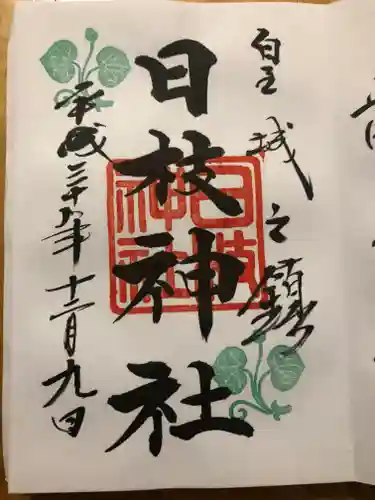 皇城之鎮
日枝神社
平成二十八年十二月九日
日枝
神社